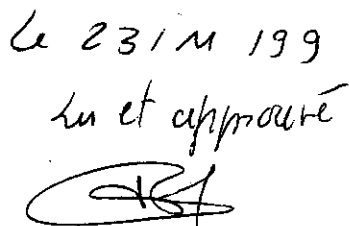 Le 23/11/99
Lu et approuvé